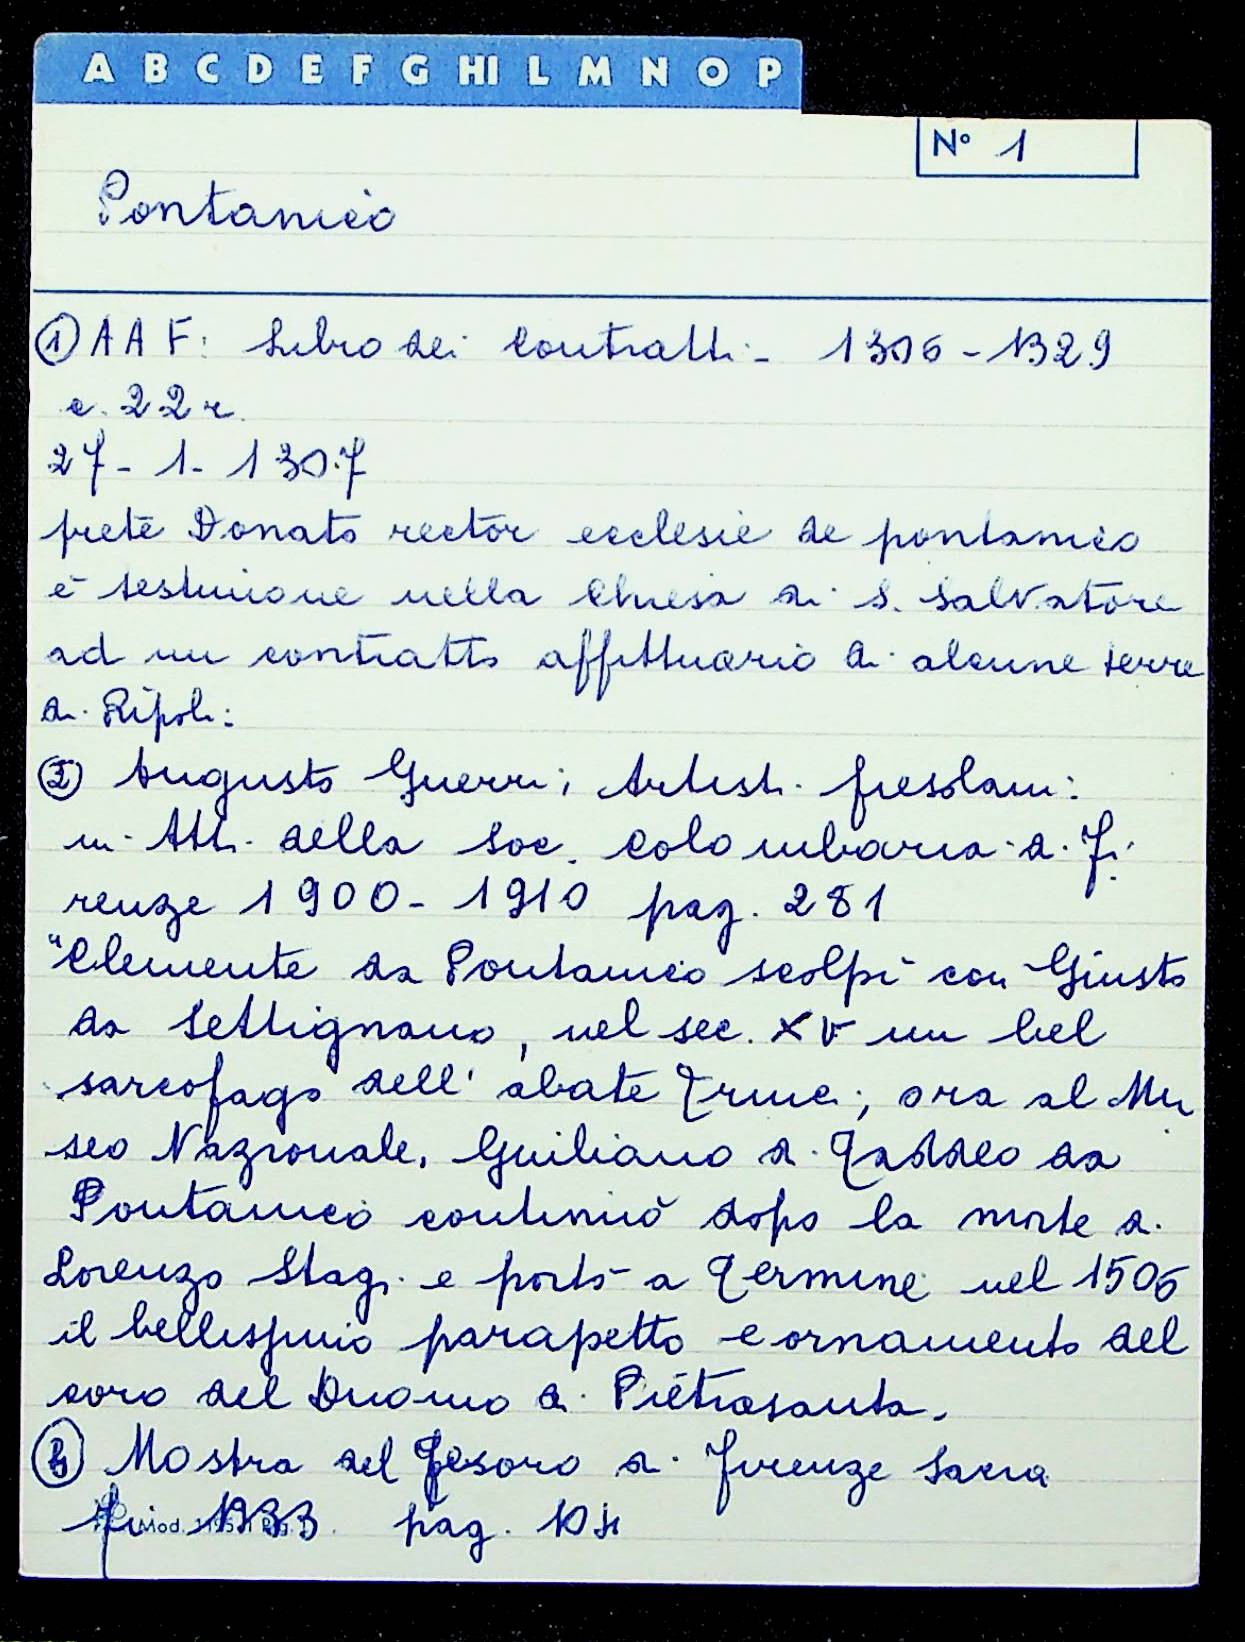 A B C D E F G HI L M N O P
N° 1
Pontanico
① A A F: Libro dei Contratti - 1306 - 1329
c. 22 r.
27 - 1 - 1307
prete Donato rector ecclesie de pontanico
è testimone nella Chiesa di S. Salvatore
ad un contratto affittuario di alcune terre
di Ripoli:
② Augusto Guerri; Artisti fiesolani:
in Atti della Soc. Colombaria di Fi
renze 1900 - 1910 pag. 281
"Clemente da Pontanico scolpì con Giusto
da Settignano, nel sec. XV un bel
sarcofago dell' abate ; ora al Mu
seo Nazionale. Guiliano di Taddeo da
Pontanico continuò dopo la morte di
Lorenzo Stagi e portò a Termine nel 1506
il bellissimo parapetto e ornamento del
coro del Duomo di Pietrasanta.
③ Mostra del Tesoro di Firenze Sacra
Fi 1933 pag. 104